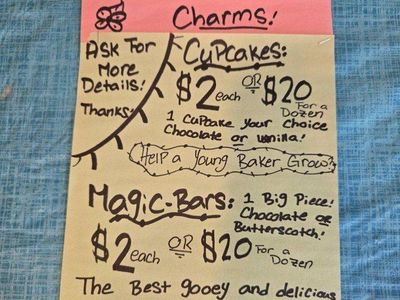 Charms!
Ask For
More
Details!
Thanks!
Cupcakes:
$2 each OR $20 For a Dozen
1 cupcake your choice
Chocolate or vanilla!
Help a Young Baker Grow!
Magic-Bars: 1 Big Piece!
Chocolate or
Butterscotch!
$2 each OR $20 For a Dozen
The Best gooey and delicious